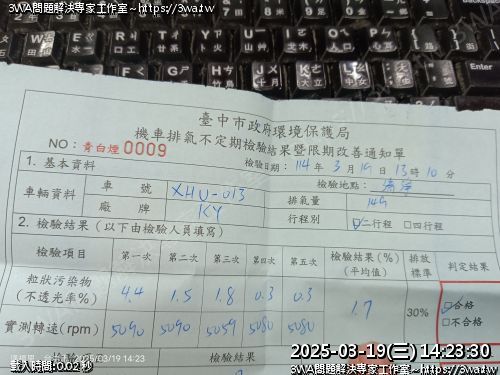 3WA問題解決專家工作室~https://3wa.tw
3WA問題解決專家工作室~https://3wa.tw
臺中市政府環境保護局
機車排氣不定期檢驗結果暨限期改善通知單
NO：青白煙0009
檢驗日期：114年3月19日13時10分
1. 基本資料
檢驗地點：
車輛資料 車號 XHU-013 排氣量 149
廠牌 KY 行程別 ☑二行程 □四行程
2. 檢驗結果（以下由檢驗人員填寫）
檢驗項目 第一次 第二次 第三次 第四次 第五次 檢驗結果(%)(平均值) 排放標準 判定結果
粒狀污染物(不透光率%) 4.4 1.5 1.8 0.3 0.3 1.7 30% ☑合格
□不合格
實測轉速(rpm) 5090 5090 5059 5080 5080
檢驗結果
2025/03/19 14:23
載入時間:0.02秒
2025-03-19(三) 14:23:30
3WA問題解決專家工作室~https://3wa.tw